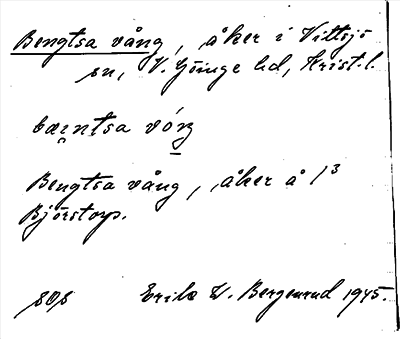 Bengtsa vång, åker i Vittsjö
sn, V. Göinge hd, Krist. l.
bæntsa vóŋ
Bengtsa vång, åker å 1³
Björstorp.
sos Erik W. Bergenrud 1945.